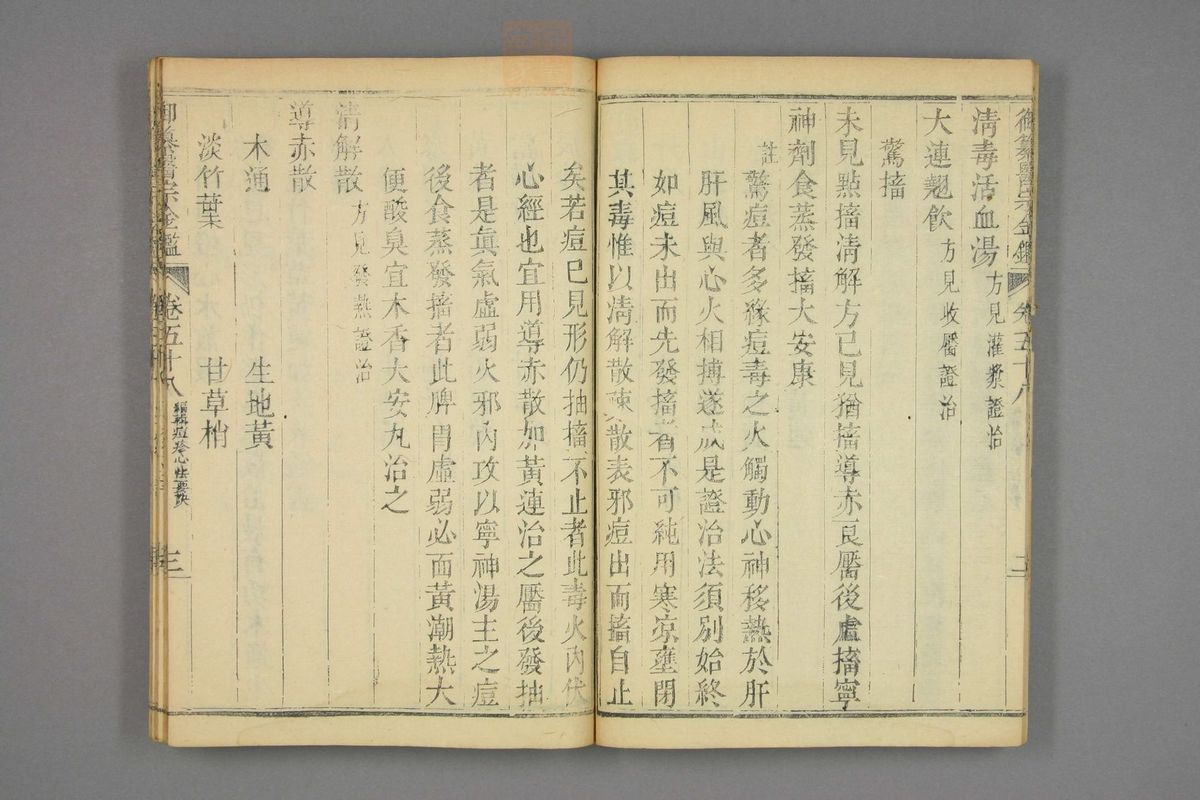 御纂醫宗金鑑 卷五十八 二
清毒活血湯 方見灌漿證治
大連翹飲 方見收靨證治
驚搐
未見點搐清解方已見猶搐導赤良靨後虛搐寧
神劑食蒸發搐大安康
註 驚痘者多緣痘毒之火觸動心神移熱於肝
肝風與心火相搏遂成是證治法須別始終
如痘未出而先發搐者不可純用寒凉壅閉
其毒惟以清解散疎散表邪痘出而搐自止
矣若痘已見形仍抽搐不止者此毒火內伏
心經也宜用導赤散加黃連治之靨後發抽
者是眞氣虛弱火邪內攻以寧神湯主之痘
後食蒸發搐者此脾胃虛弱必面黃潮熱大
便酸臭宜木香大安丸治之
清解散 方見發熱證治
導赤散
木通 生地黃
淡竹葉 甘草梢
御纂醫宗金鑑 卷五十八 編輯痘疹心法要訣 三